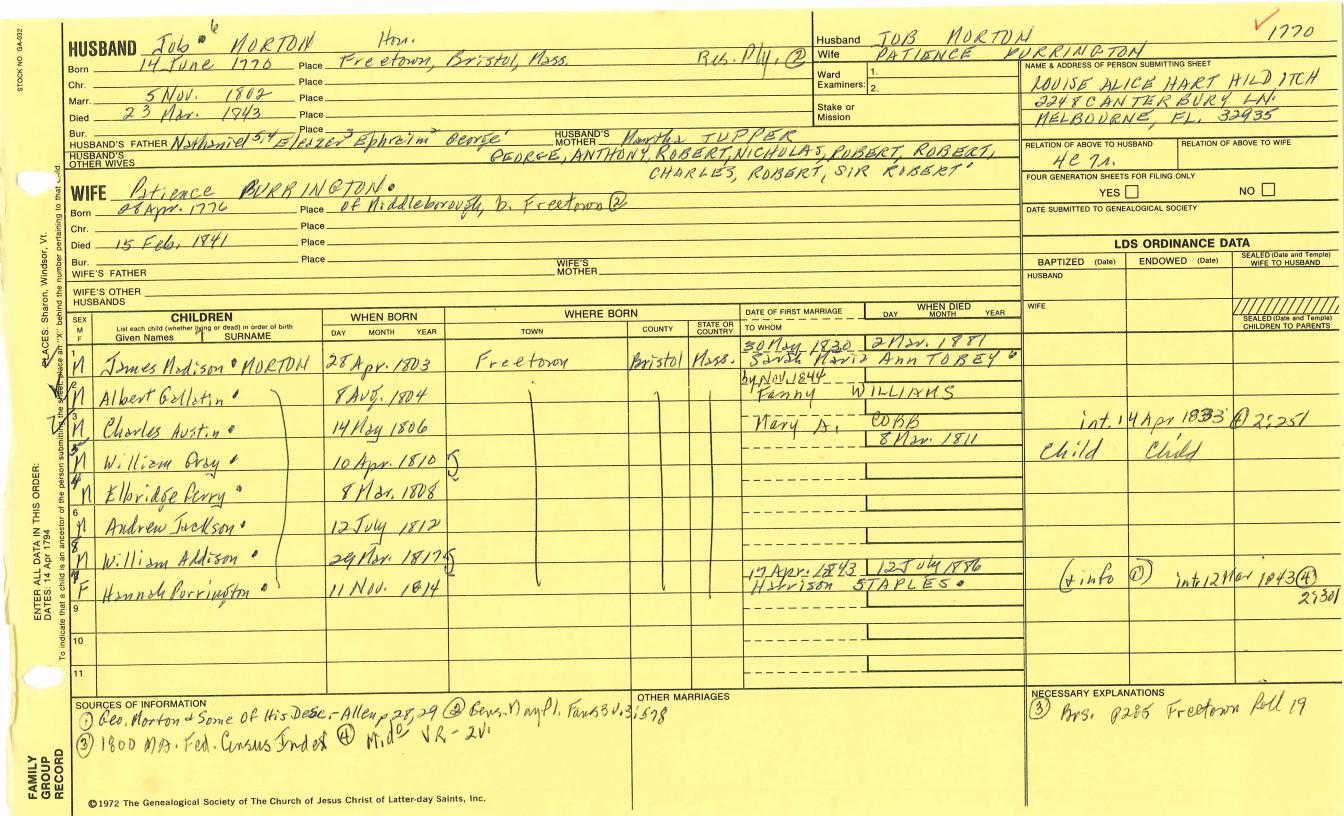 STOCK NO. GA-032
HUSBAND Job 6 MORTON Hon.
Born 14 June 1770 Place Freetown, Bristol, Mass. Res. Ply. ②
Chr. Place
Marr. 5 Nov. 1802 Place
Died 23 Mar. 1843 Place
Bur. Place
HUSBAND'S FATHER Nathaniel 5,4 Eleazer 3 Ephraim 2 George 1 HUSBAND'S MOTHER Martha TUPPER
HUSBAND'S OTHER WIVES GEORGE, ANTHONY, ROBERT, NICHOLAS, ROBERT, ROBERT,
CHARLES, ROBERT, SIR ROBERT
WIFE Patience PURRINGTON
Born Apr. 1776 Place of Middleborough, b. Freetown ②
Chr. Place
Died 15 Feb. 1841 Place
Bur. Place
WIFE'S FATHER WIFE'S MOTHER
WIFE'S OTHER HUSBANDS
Husband JOB MORTON 1770
Wife PATIENCE PURRINGTON
Ward Examiners: 1.
2.
Stake or Mission
NAME & ADDRESS OF PERSON SUBMITTING SHEET
LOUISE ALICE HART HILD ITCH
2248 CANTERBURY LN.
MELBOURNE, FL. 32935
RELATION OF ABOVE TO HUSBAND RELATION OF ABOVE TO WIFE
4C 7r.
FOUR GENERATION SHEETS FOR FILING ONLY
YES NO
DATE SUBMITTED TO GENEALOGICAL SOCIETY
LDS ORDINANCE DATA
BAPTIZED (Date) ENDOWED (Date) SEALED (Date and Temple) WIFE TO HUSBAND
HUSBAND
WIFE
SEALED (Date and Temple) CHILDREN TO PARENTS
SEX M F CHILDREN List each child (whether living or dead) in order of birth Given Names SURNAME WHEN BORN DAY MONTH YEAR WHERE BORN TOWN COUNTY STATE OR COUNTRY DATE OF FIRST MARRIAGE TO WHOM WHEN DIED DAY MONTH YEAR
30 May 1830 2 Mar. 1881
1 M James Madison MORTON 28 Apr. 1803 Freetown Bristol Mass. Sarah Maria Ann TOBEY
by Nov. 1844
2 M Albert Gallatin 8 Aug. 1804 Fanny WILLIAMS
3 M Charles Austin 14 May 1806 Mary A. COBB int. 14 Apr 1833 ④ 2:251
8 Mar. 1811
5 M William Gray 10 Apr. 1810 Child Child
4 M Elbridge Gerry 8 Mar. 1808
6 M Andrew Jackson 12 July 1812
8 M William Addison 29 Mar. 1817
17 Apr. 1843 12 July 1886
7 F Hannah Porrington 11 Nov. 1814 Harrison STAPLES (+ info ①) int 12 Mar 1843 ④
2:301
9
10
11
SOURCES OF INFORMATION
① Geo. Morton & Some Of His Desc. - Allen p 28,29 ② Gens. Mayfl. Fams 3 v. 3:578
③ 1800 MA. Fed. Census Index ④ Mido VR - 2v.
OTHER MARRIAGES
NECESSARY EXPLANATIONS
③ p285 Freetown Roll 19
©1972 The Genealogical Society of The Church of Jesus Christ of Latter-day Saints, Inc.
FAMILY GROUP RECORD
ENTER ALL DATA IN THIS ORDER:
DATES: 14 Apr 1794
PLACES: Sharon, Windsor, Vt.
To indicate that a child is an ancestor of the person submitting the sheet, place an "X" behind the number pertaining to that child.